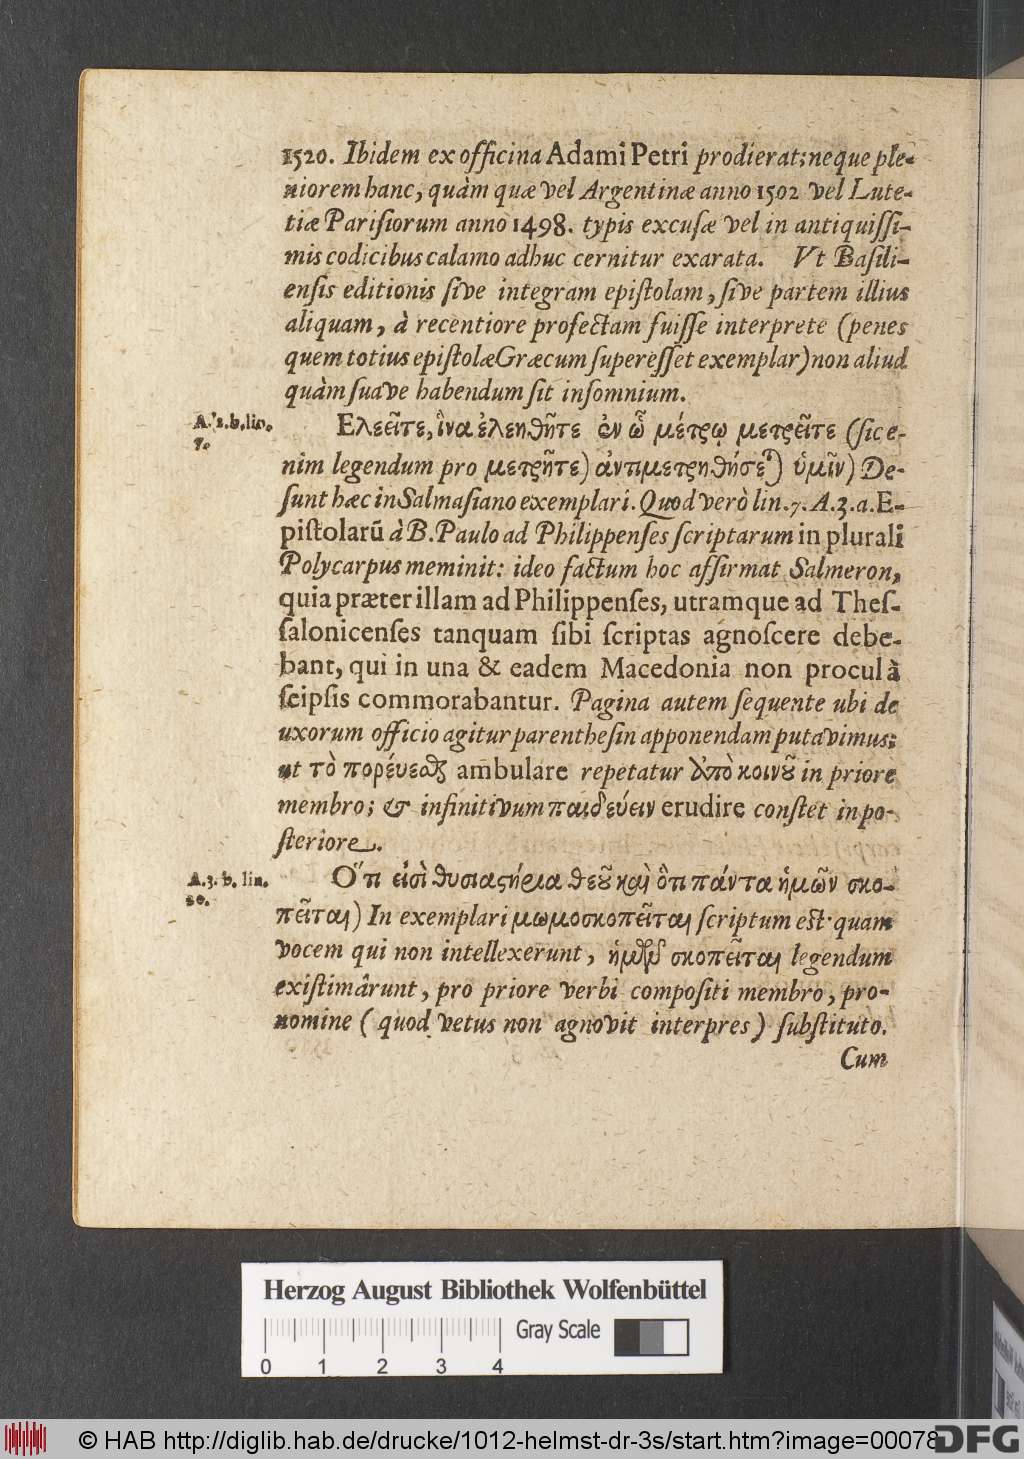 1520. Ibidem ex officina Adami Petri prodierat; neque ple-
niorem hanc, quàm quæ vel Argentinæ anno 1502 vel Lute-
tiæ Parisiorum anno 1498. typis excusæ vel in antiquissi-
mis codicibus calamo adhuc cernitur exarata. Vt Basili-
ensis editionis sive integram epistolam, sive partem illius
aliquam, à recentiore profectam fuisse interprete (penes
quem totius epistolæ Græcum superesset exemplar) non aliud
quàm suave habendum sit insomnium.
A. 2. b. lin.
7.
Ελεεῖτε, ἵνα ἐλεηθῆτε ἐν ᾧ μέτρῳ μετρεῖτε (sic e-
nim legendum pro μετρῆτε) ἀντιμετρηθήσεται ὑμῖν) De-
sunt hæc in Salmasiano exemplari. Quod verò lin. 7. A. 3. a. E-
pistolarū à B. Paulo ad Philippenses scriptarum in plurali
Polycarpus meminit: ideo factum hoc assirmat Salmeron,
quia præter illam ad Philippenses, utramque ad Thes-
salonicenses tanquam sibi scriptas agnoscere debe-
bant, qui in una & eadem Macedonia non procul à
seipsis commorabantur. Pagina autem sequente ubi de
uxorum officio agitur parenthesin apponendam putavimus;
ut τὸ πορεύεσθαι ambulare repetatur ἀπὸ κοινοῦ in priore
membro; & infinitivum παιδεύειν erudire constet in po-
steriore.
A. 3. b. lin.
20.
Ὅτι εἰσὶ θυσιαστήρια θεοῦ καὶ ὅτι πάντα ἡμῶν σκο-
πεῖται) In exemplari μωμοσκοπεῖται scriptum est: quam
vocem qui non intellexerunt, ἡμῶν σκοπεῖται legendum
existimârunt, pro priore verbi compositi membro, pro-
nomine (quod vetus non agnovit interpres) substituto.
Cum
Herzog August Bibliothek Wolfenbüttel
Gray Scale
0 1 2 3 4
© HAB http://diglib.hab.de/drucke/1012-helmst-dr-3s/start.htm?image=00078
DFG